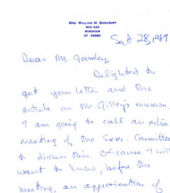 MRS. WILLIAM H. BANCROFT
BOX
WINDHAM
CT 06280
Sept 28, 1989
Dear Ms. Gormley,
Delighted to
get your letter and the
article on Mr. Gillooly's museum.
I am going to call an extra
meeting of the Exec Committee
to discuss this. Of course I will
want to know, before the
meeting, an approximation of